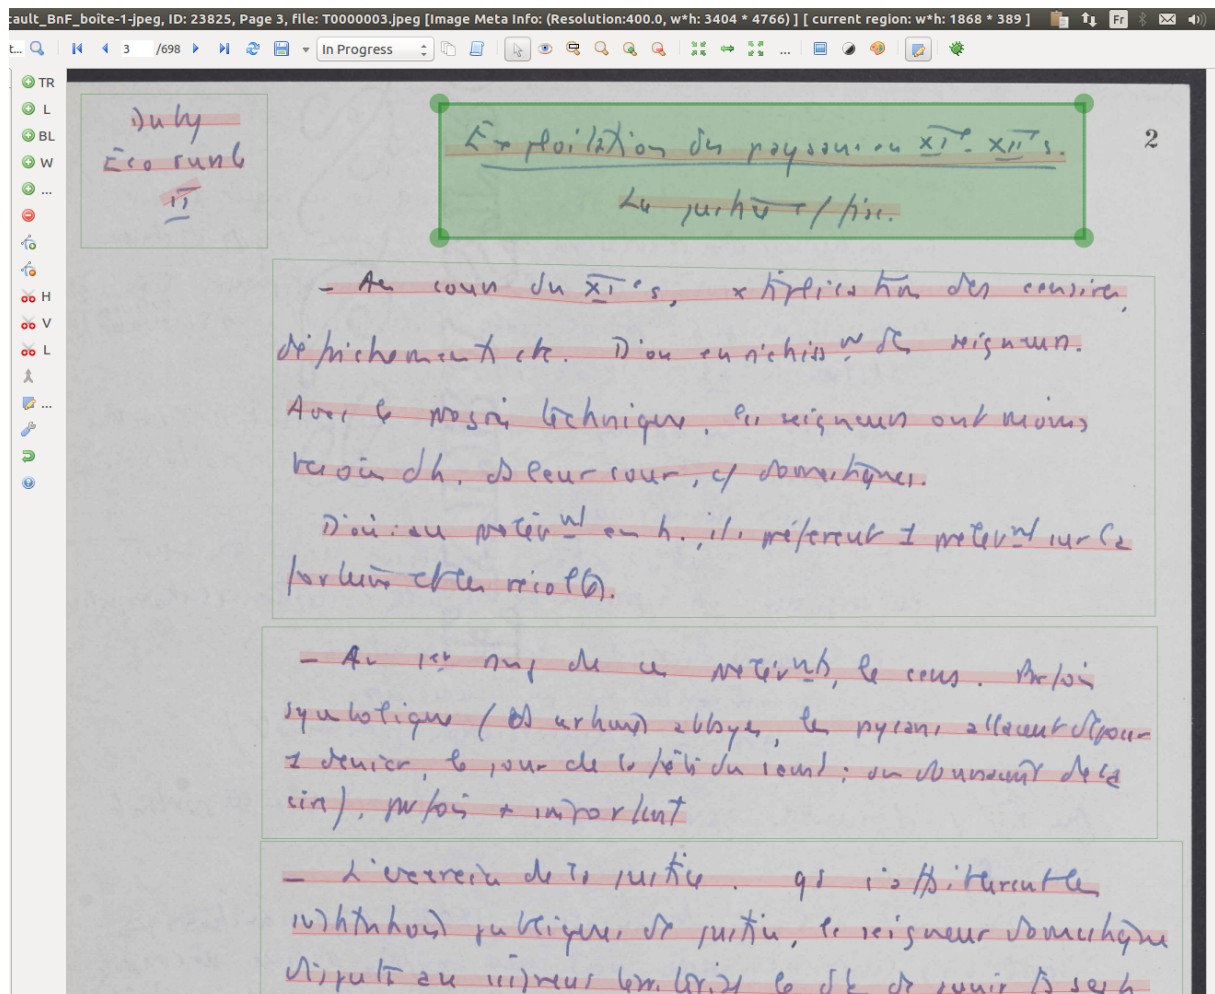 cault_BnF_boite-1-jpeg, ID: 23825, Page 3, file: T0000003.jpeg [Image Meta Info: (Resolution:400.0, w*h: 3404 * 4766) ] [ current region: w*h: 1868 * 389 ]
Fr
t... 3 /698 In Progress ...
TR
L
BL
W
...
H
V
L
...
2
Duby
Eco rurale
II
Exploitation du paysan au XIe - XIIe s.
La justice / fisc.
- Au cours du XIe s, xtiplication des censives,
défrichements etc. D'où enrichissmt de seigneurs.
Avec le progrès technique, les seigneurs ont moins
besoin d'h. ds leur cour, c/ domestiques.
D'où : au prélèvmt en h., ils préfèrent 1 prélèvmt sur la
fortune et les récoltes.
- Au 1er rang de ce prélèvmts, le cens. Parfois
symbolique (ds certaines abbayes, les paysans allaient déposer
1 denier, le jour de la fête du saint ; on donnait de la
cire), parfois + important
- L'exercice de la justice. qd s'effritèrent les
institutions publiques de justice, le seigneur domestique
disputa au seigneur le dt de punir ds ses h